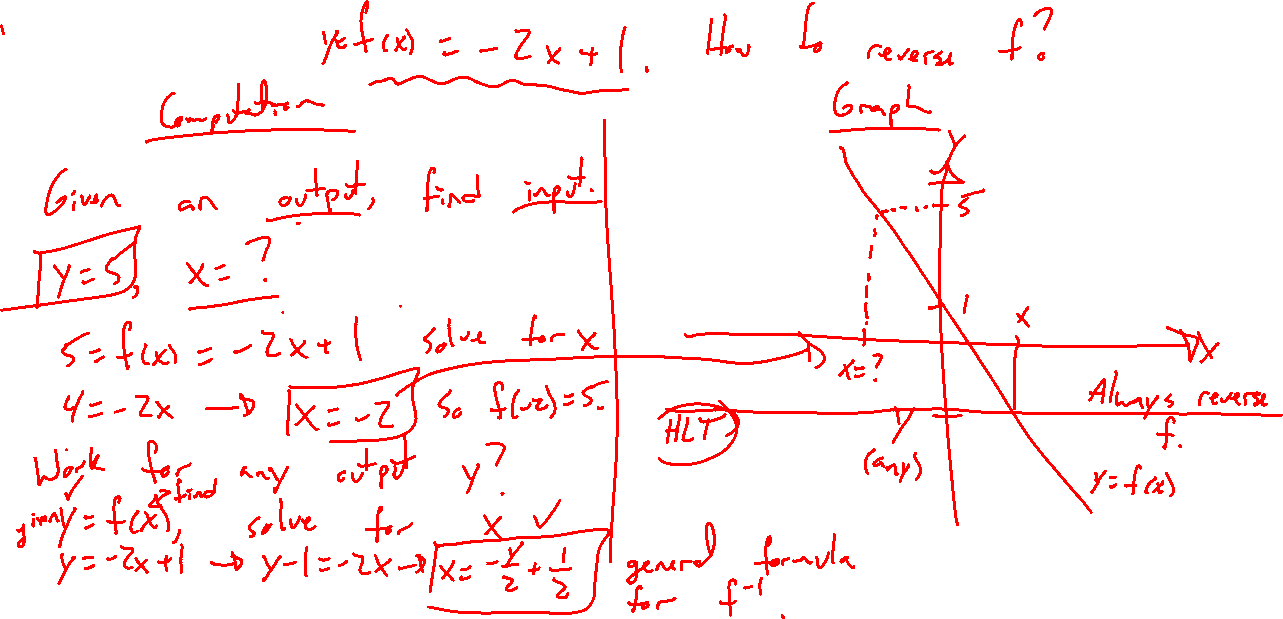 y=f(x) = -2x+1. How to reverse f?
Computation
Given an output, find input.
y=5, x=?
5=f(x) = -2x+1 solve for x
4=-2x → x=-2 so f(-2)=5.
Work for any output y?
given y=f(x), find solve for x ✓
y=-2x+1 → y-1=-2x → x=-y/2+1/2 general formula for f⁻¹.
Graph
y
5
1
x
x
x=?
HLT
y
(any)
Always reverse
f.
y=f(x)